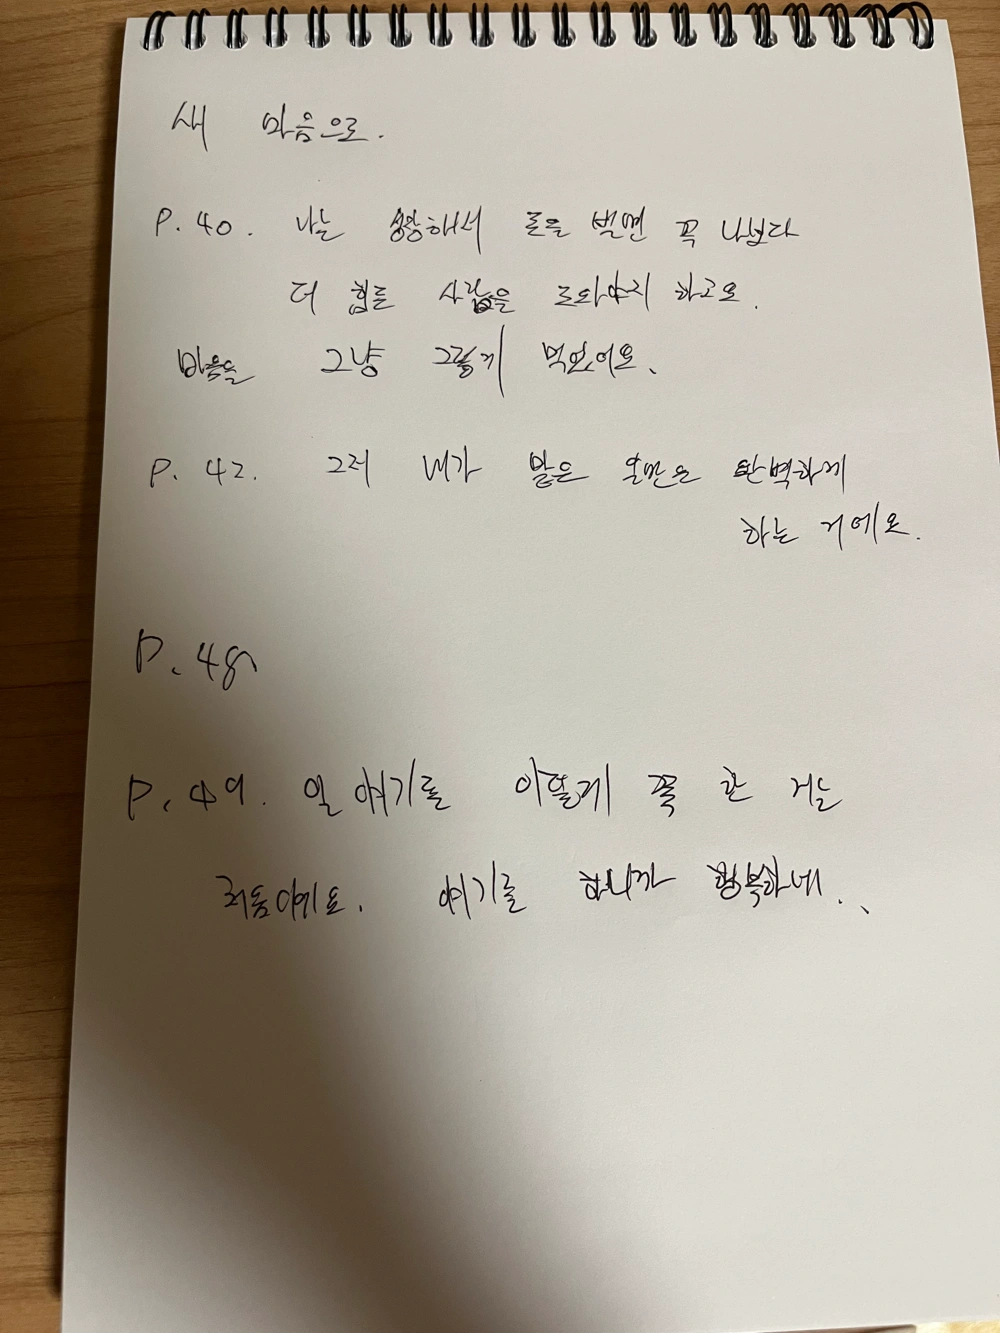 새 마음으로.
P. 40. 나는 성장해서 돈을 벌면 꼭 나보다
더 힘든 사람을 도와야지 하고요.
마음을 그냥 그렇게 먹었어요.
P. 42. 그저 내가 맡은 일만은 완벽하게
하는 거예요.
P. 48
P. 49. 일 얘기를 이렇게 쭉 한 거는
처음이에요. 얘기를 하니까 행복하네..